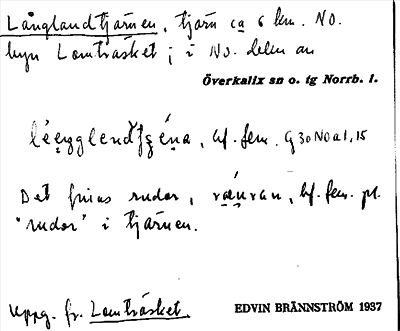 Långlandtjärnen, tjärn ca 6 km. NO.
byn Lomträsket; i NO. delen av
Överkalix sn o. tg Norrb. l.
bf. fem. G 30 NO a 1, 15
Det finns rudor, bf. fem. pl.
"rudor" i tjärnen.
Uppg. fr. Lomträsket.
EDVIN BRÄNNSTRÖM 1937